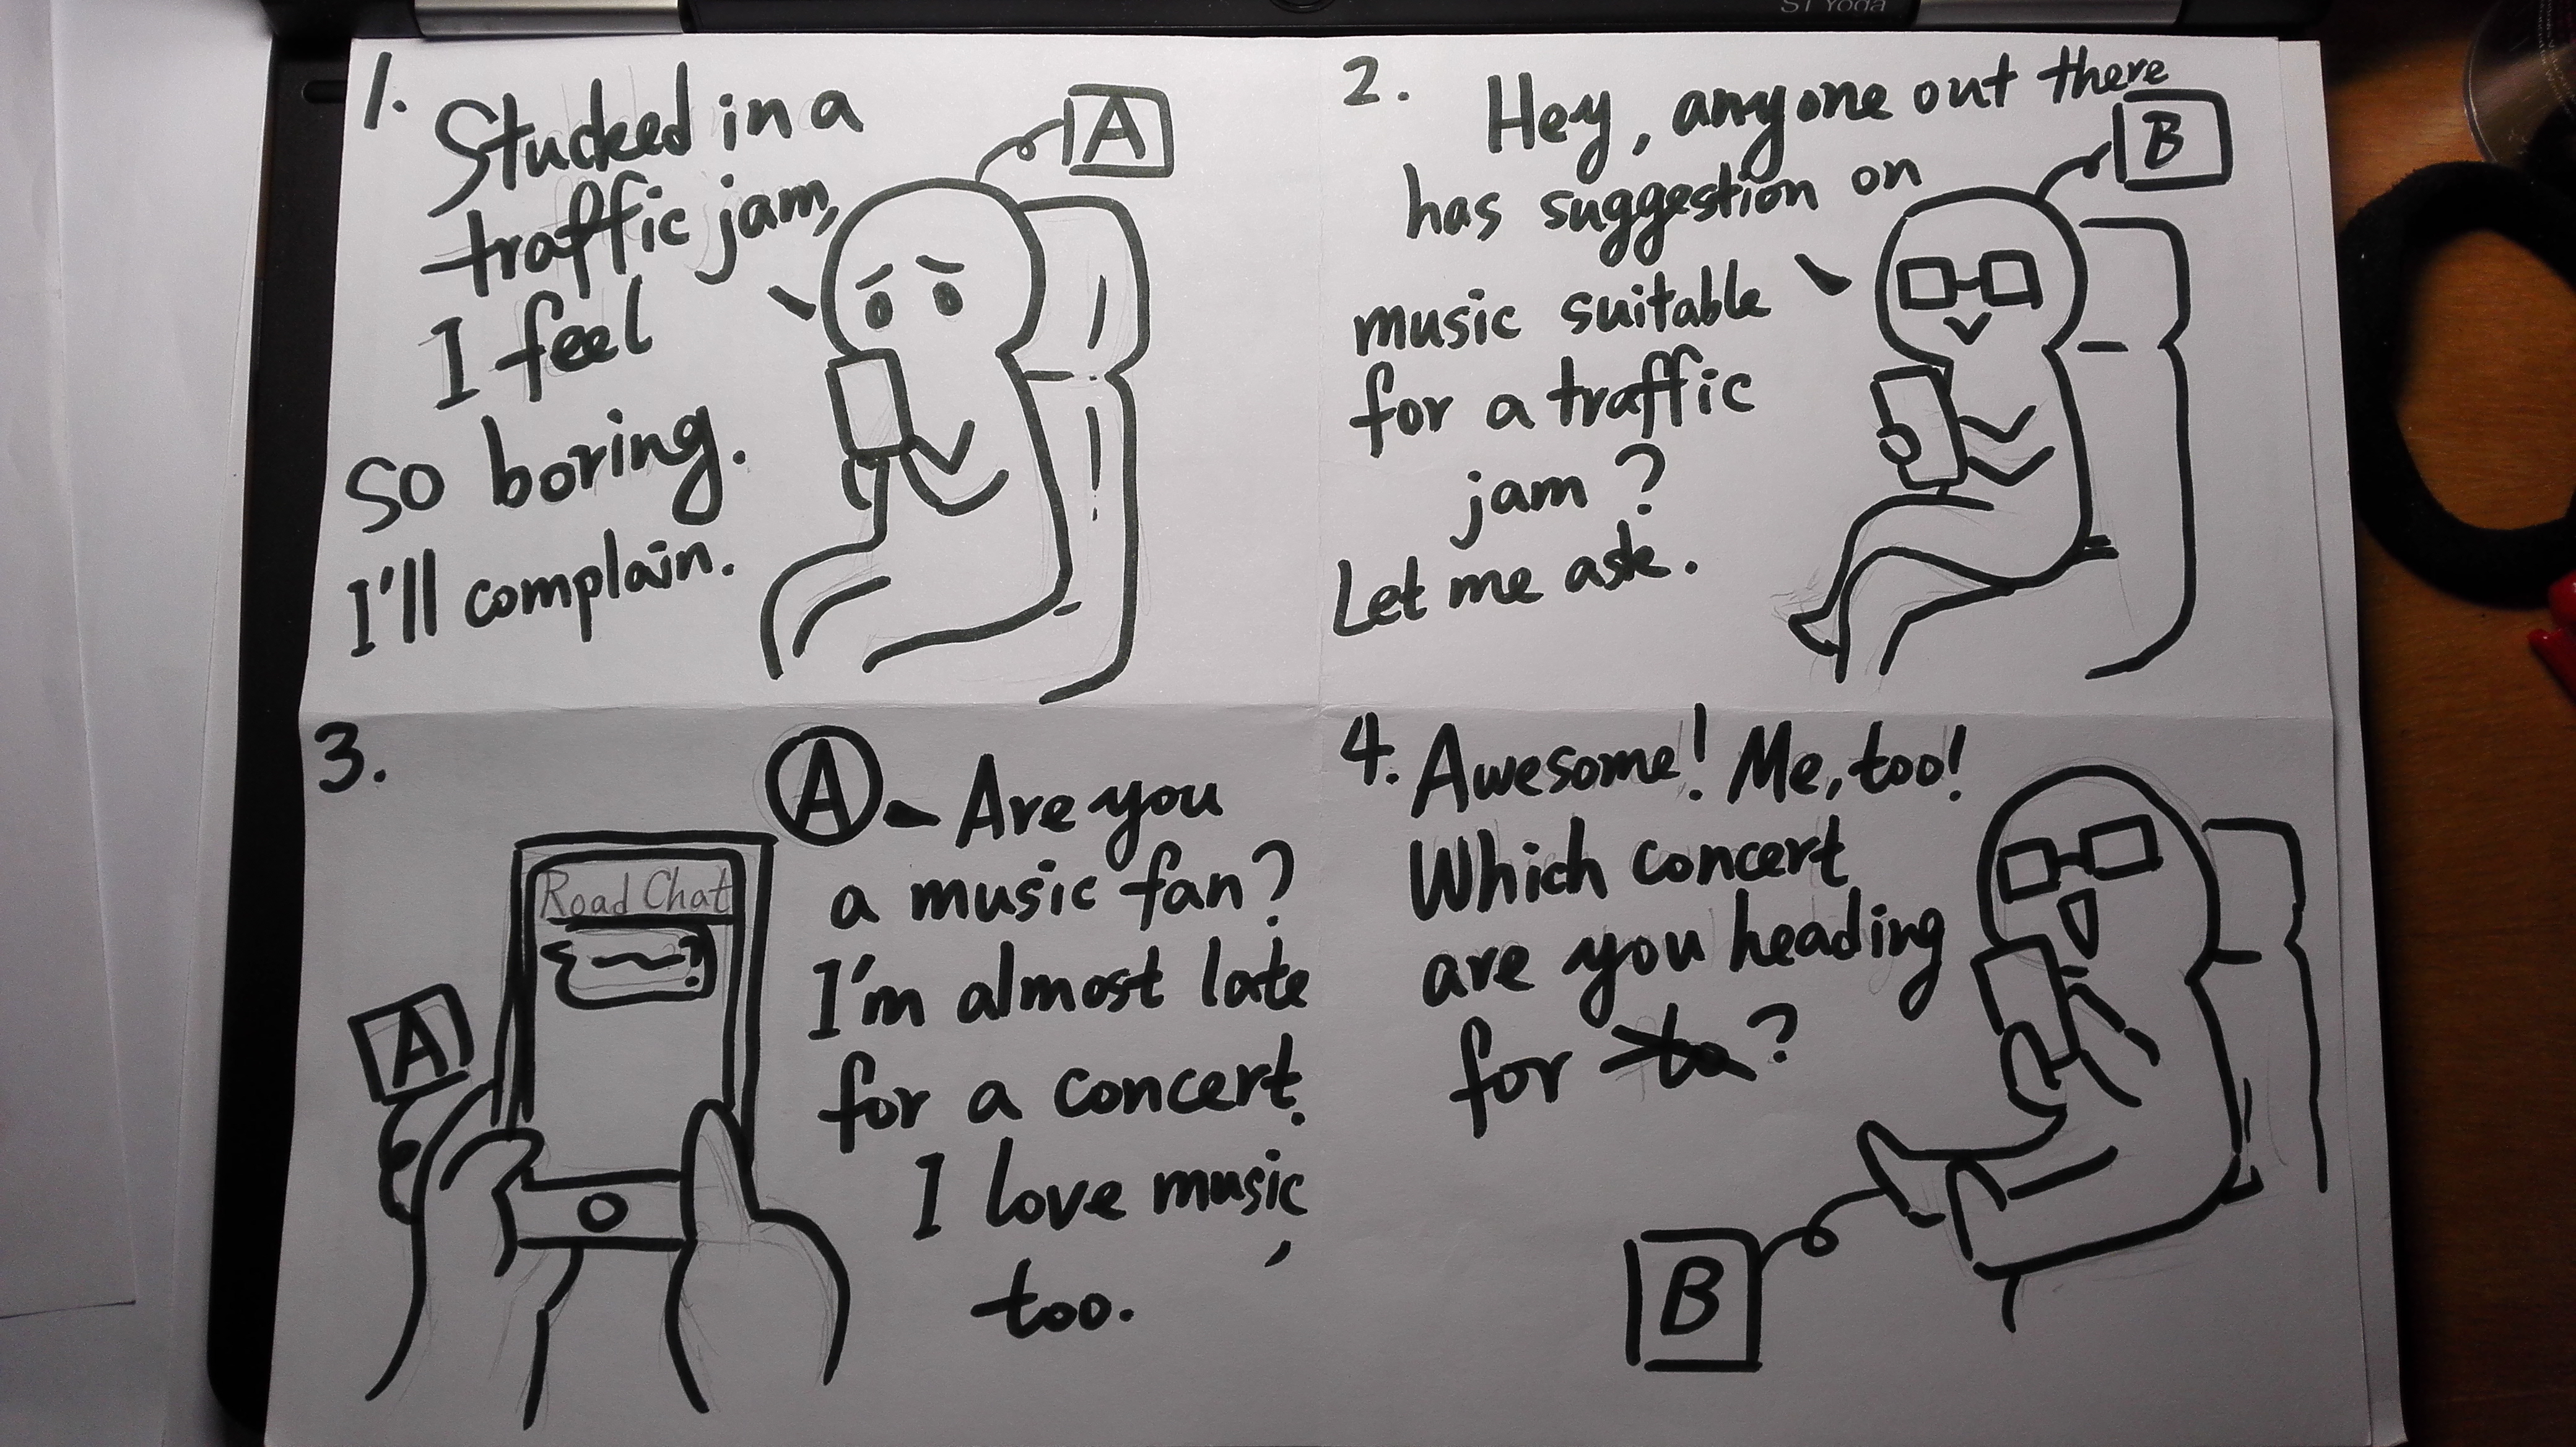 S1 Yoga
1.
Stucked in a
traffic jam,
I feel
so boring.
I'll complain.
A
2.
Hey, anyone out there
has suggestion on
music suitable
for a traffic
jam?
Let me ask.
B
3.
Road Chat
A
A
Are you
a music fan?
I'm almost late
for a concert.
I love music,
too.
4.
Awesome! Me, too!
Which concert
are you heading
for to?
B